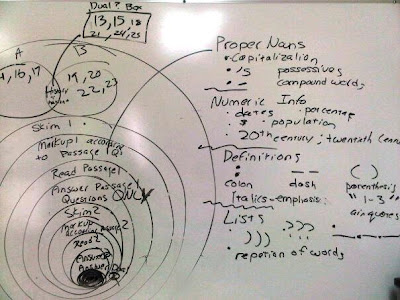 Dual ? Box
13, 15, 18
21, 24, 25
A
B
14, 16, 17
19, 20
22, 23
Skim 1
Markup 1 according
to Passage Q's
Read Passage 1
Answer Passage 1
Questions ONLY
Skim 2
Markup
according 2
Read 2
Answer 2
Answer Dual
Proper Nans
• Capitalization
• 's possessives
• — compound words
Numeric Info
• dates • percentage
• # • population
• 20th century; twentieth Century
Definitions
: — — ( )
colon dash parenthesis
Italics - emphasis "1-3"
airquotes
Lists
• ) ) ) ; ; ;
• repetion of words